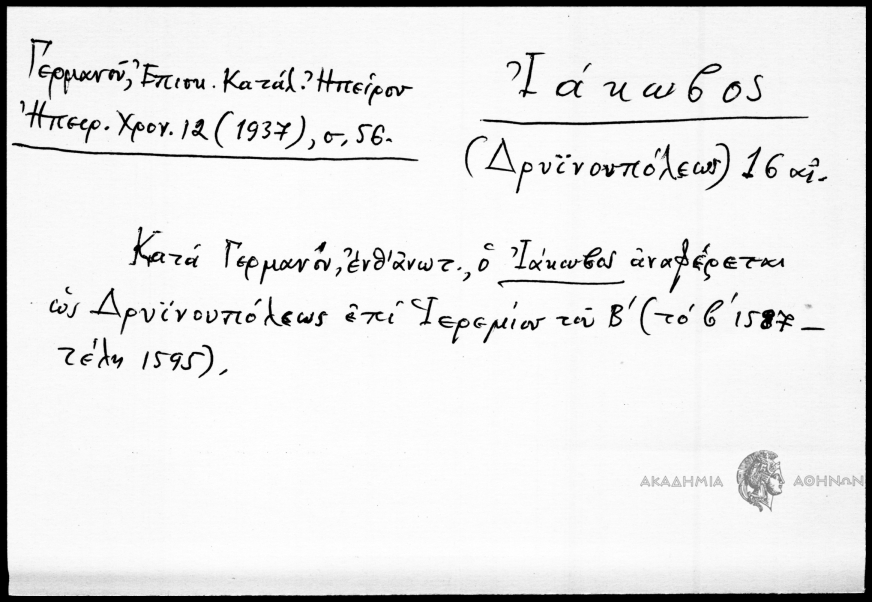 Γερμανοῦ, Ἐπισκ. Κατάλ. Ἠπείρου
Ἠπειρ. Χρον. 12 (1937), σ. 56.
Ἰάκωβος
(Δρυϊνουπόλεως) 16 αἰ.
Κατά Γερμανόν, ἔνθ' ἀνωτ., ὁ Ἰάκωβος ἀναφέρεται
ὡς Δρυϊνουπόλεως ἐπί Ἱερεμίου τοῦ Β' (τό β' 1587 –
τέλη 1595).
ΑΚΑΔΗΜΙΑ ΑΘΗΝΩΝ